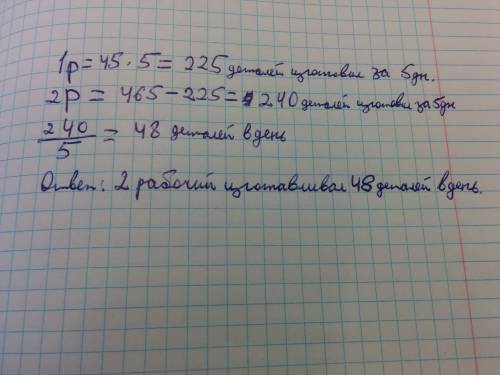 1р = 45 · 5 = 225 деталей изготовил за 5 дн.
2р = 465 - 225 = 240 деталей изготовил за 5 дн
240/5 = 48 деталей в день
Ответ: 2 рабочий изготавливал 48 деталей в день.